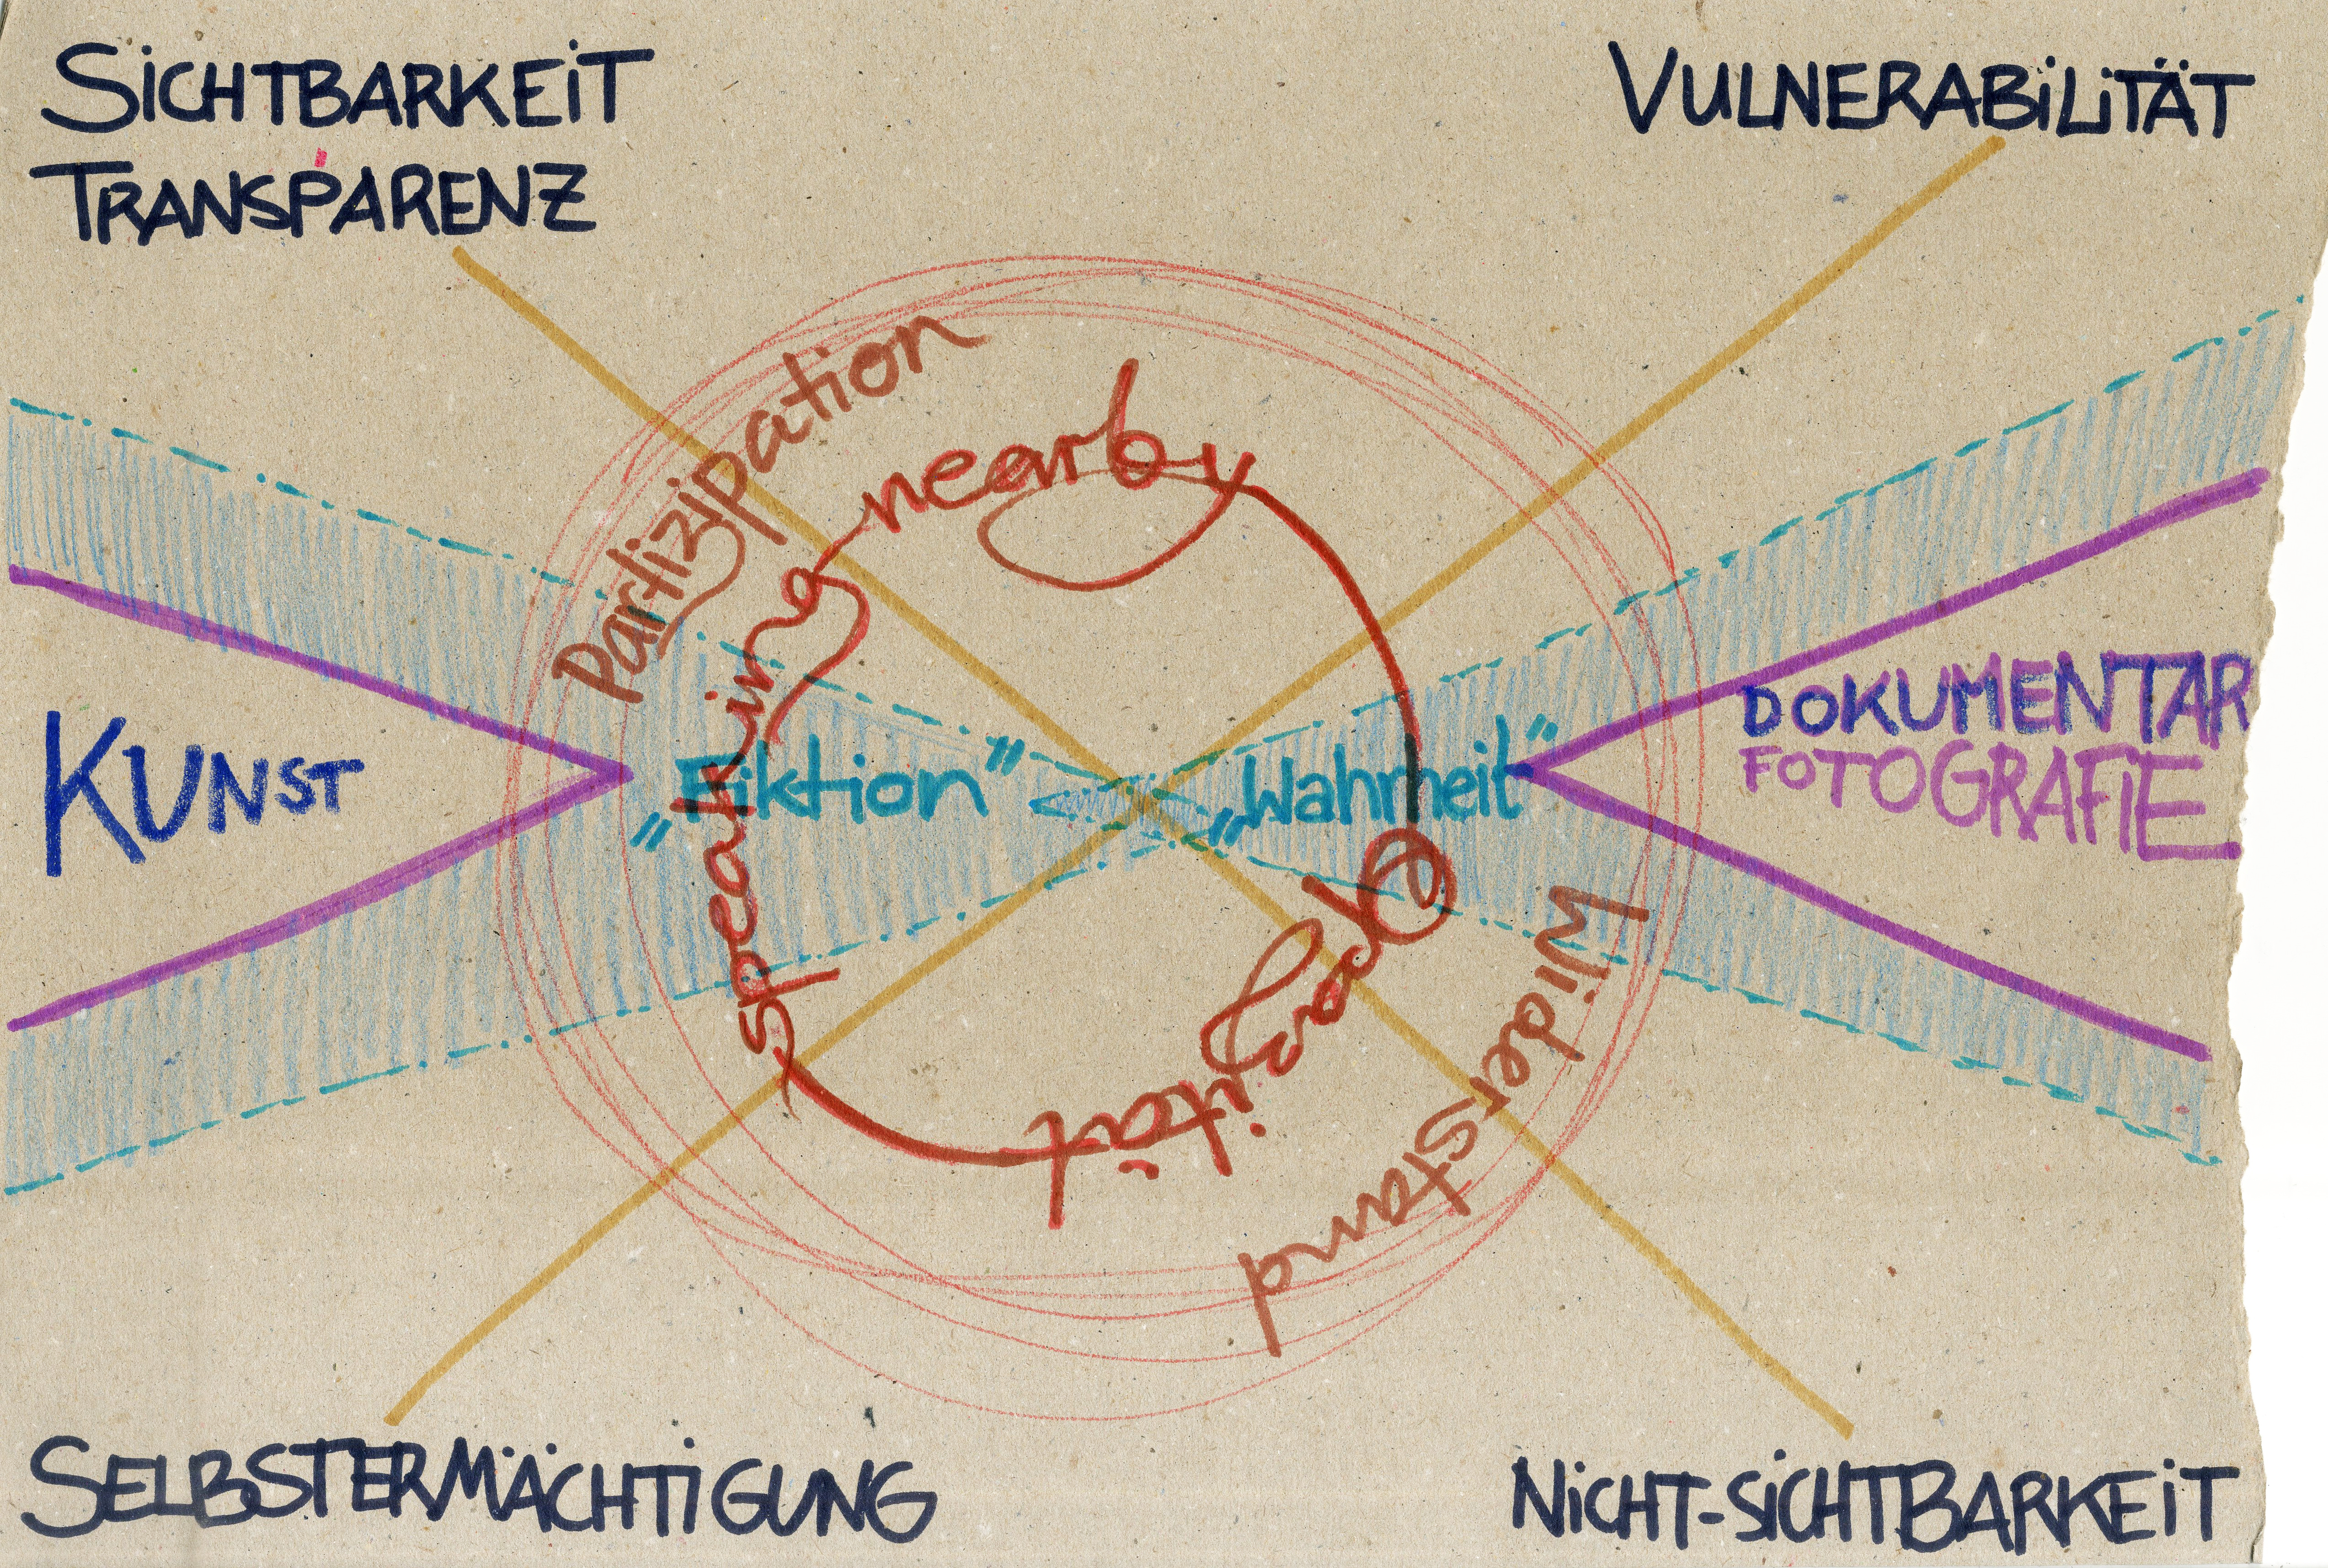 SICHTBARKEIT
TRANSPARENZ
VULNERABILITÄT
Partizipation
speaking nearby
KUNST
"Fiktion"
„Wahrheit"
DOKUMENTAR
FOTOGRAFIE
Opazität
Widerstand
SELBSTERMÄCHTIGUNG
NICHT-SICHTBARKEIT